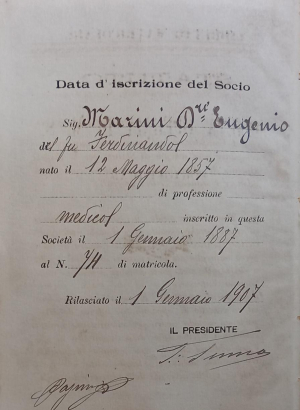 Data d' iscrizione del Socio
Sig. Marini Dre Eugenio
del fu Ferdinando
nato il 12 Maggio 1857
di professione
medico inscritto in questa
Società il 1 Gennaio 1887
al N. 711 di matricola.
Rilasciato il 1 Gennaio 1907
IL PRESIDENTE